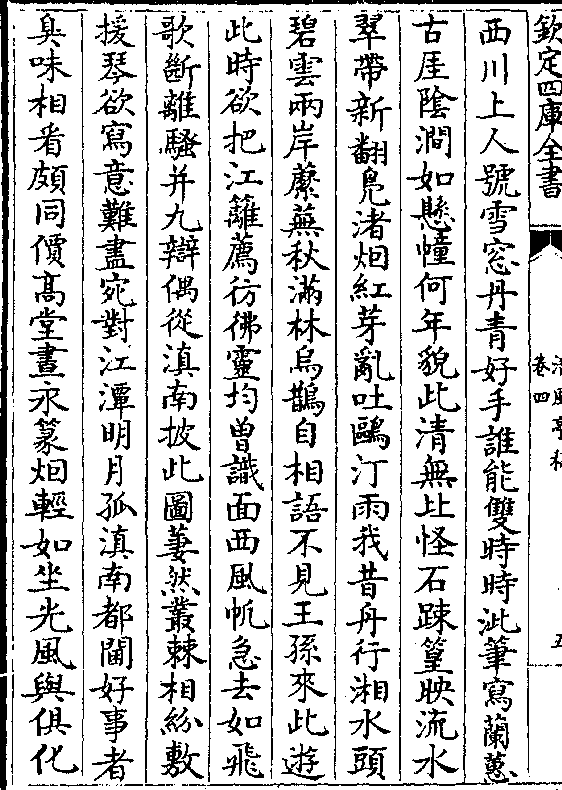 欽定四庫全書
卷四
西川上人號雪窓丹青好手誰能雙時時泚筆寫蘭蕙
古厓陰澗如懸幢何年貌此清無比怪石踈篁映流水
翠帶新翻鳧渚烟紅芽亂吐鷗汀雨我昔舟行湘水頭
碧雲兩岸蘪蕪秋滿林烏鵲自相語不見王孫來此遊
此時欲把江蘺薦彷彿靈均曽識面西風帆急去如飛
歌斷離騷并九辯偶從滇南披此圖萋然叢棘相紛敷
援琴欲寫意難盡宛對江潭明月孤滇南都閫好事者
臭味相看頗同價髙堂晝永篆烟輕如坐光風與俱化